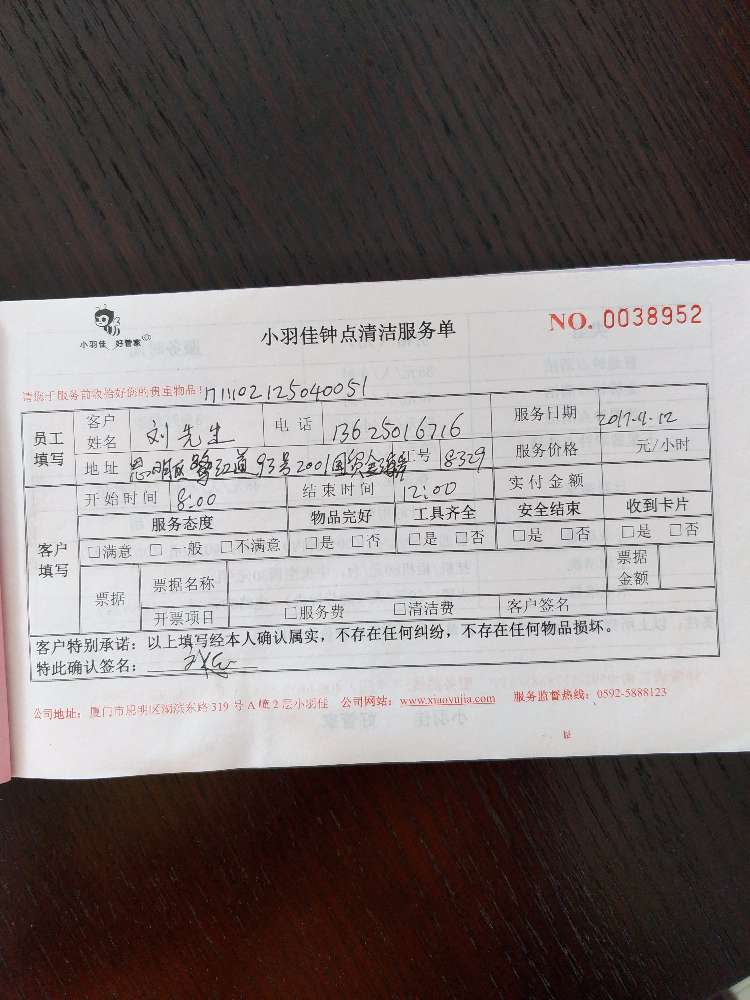 小羽佳 好管家
小羽佳钟点清洁服务单
NO. 0038952
请您于服务前收拾好您的贵重物品!
711102125040051
员工填写
客户姓名 刘先生 电话 13625016716 服务日期 2017-9-12
地址 思明区鹭江道93号2001国贸 工号 18329 服务价格 元/小时
开始时间 8:00 结束时间 12:00 实付金额
客户填写
服务态度 物品完好 工具齐全 安全结束 收到卡片
□满意 □一般 □不满意 □是 □否 □是 □否 □是 □否 □是 □否
票据 票据名称 票据金额
开票项目 □服务费 □清洁费 客户签名
客户特别承诺:以上填写经本人确认属实,不存在任何纠纷,不存在任何物品损坏。
特此确认签名:
公司地址:厦门市思明区湖滨东路319号A幢2层小羽佳 公司网站:www.xiaoyujia.com 服务监督热线:0592-5888123